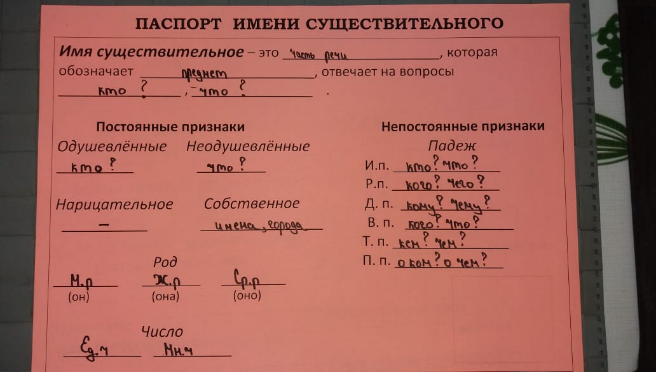 ПАСПОРТ ИМЕНИ СУЩЕСТВИТЕЛЬНОГО
Имя существительное – это часть речи, которая
обозначает предмет, отвечает на вопросы
кто?, что? .
Постоянные признаки
Одушевлённые Неодушевлённые
кто? что?
Нарицательное Собственное
– имена, города
Род
М.р Ж.р Ср.р
(он) (она) (оно)
Число
Ед.ч Мн.ч
Непостоянные признаки
Падеж
И.п. кто? что?
Р.п. кого? чего?
Д. п. кому? чему?
В. п. кого? что?
Т. п. кем? чем?
П. п. о ком? о чем?